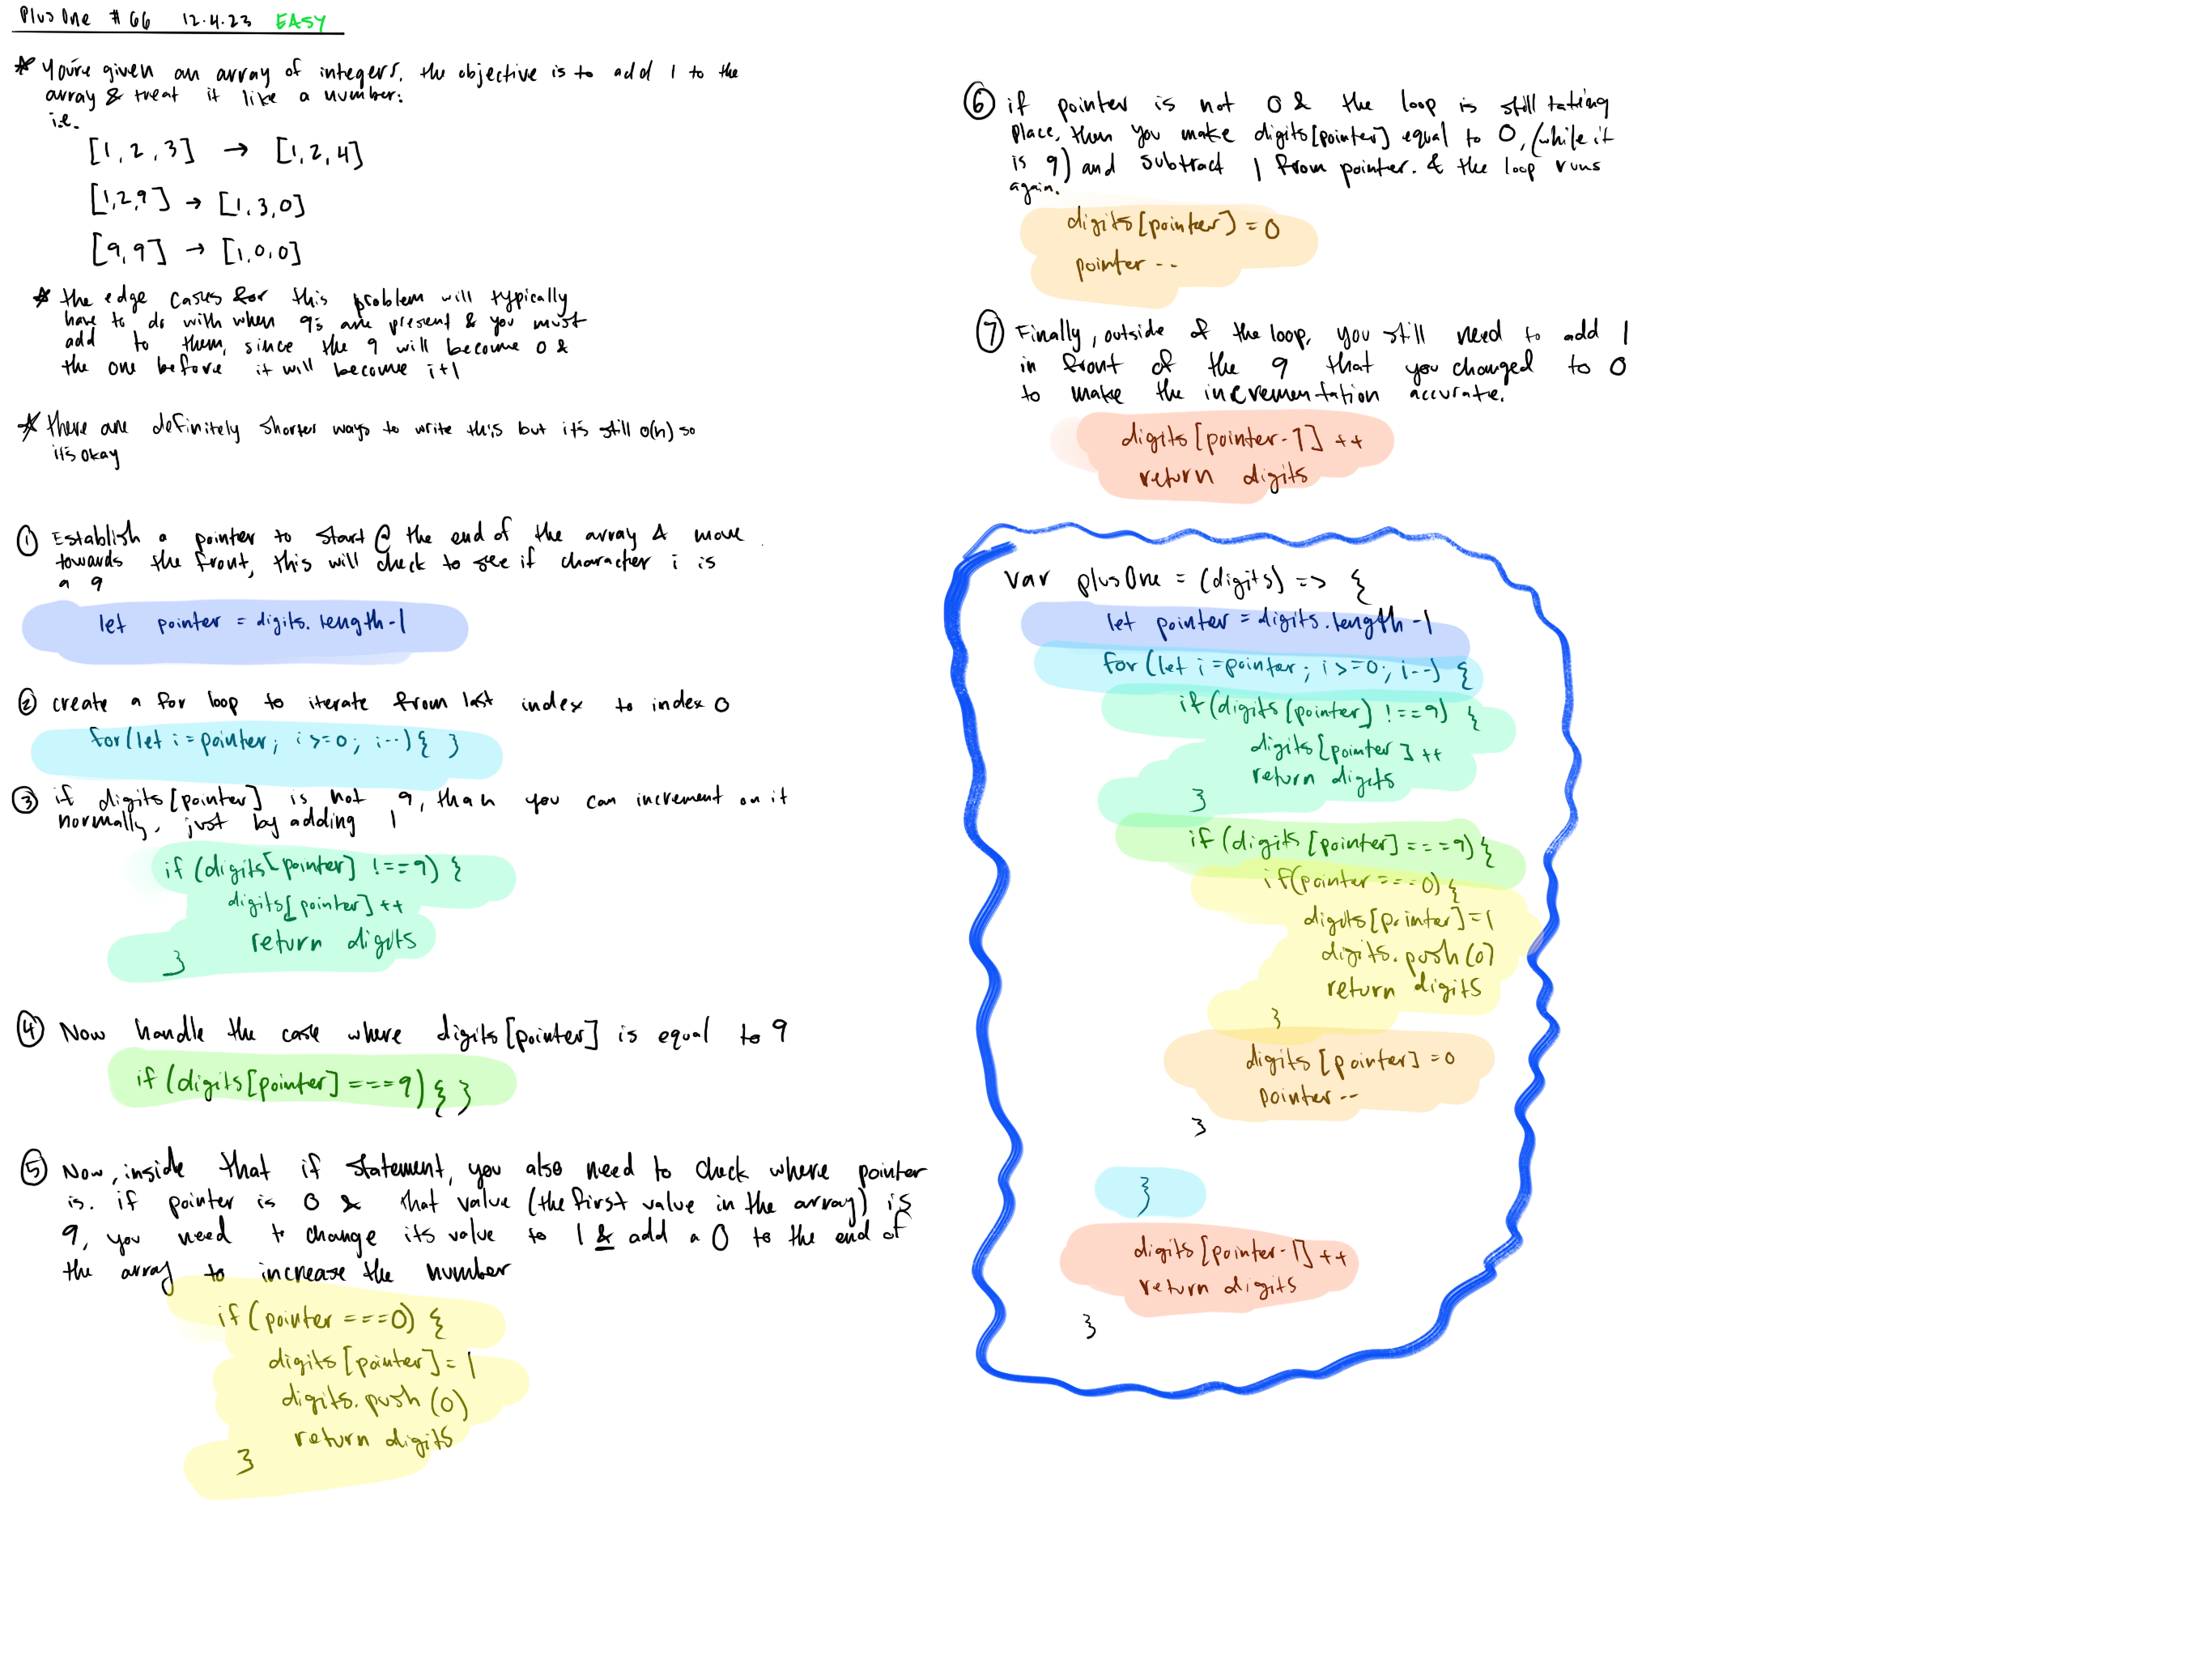 Plus One # 66 12.4.23 EASY
* You're given an array of integers, the objective is to add 1 to the
array & treat it like a number:
i.e.
[1, 2, 3] → [1, 2, 4]
[1,2,9] → [1,3,0]
[9,9] → [1,0,0]
* the edge cases for this problem will typically
have to do with when 9's are present & you must
add to them, since the 9 will become 0 &
the one before it will become i+1
* there are definitely shorter ways to write this but it's still o(n) so
it's okay
① Establish a pointer to start @ the end of the array & move
towards the front, this will check to see if character i is
a 9
let pointer = digits.length-1
② create a for loop to iterate from last index to index 0
for(let i=pointer; i>=0; i--){ }
③ if digits[pointer] is not 9, than you can increment on it
normally, just by adding 1
if (digits[pointer] !==9) {
digits[pointer]++
return digits
}
④ Now handle the case where digits[pointer] is equal to 9
if (digits[pointer]===9){ }
⑤ Now, inside that if statement, you also need to check where pointer
is. if pointer is 0 & that value (the first value in the array) is
9, you need to change its value to 1 & add a 0 to the end of
the array to increase the number
if (pointer ===0) {
digits[pointer]=1
digits.push(0)
return digits
}
⑥ if pointer is not 0 & the loop is still taking
place, then you make digits[pointer] equal to 0, (while it
is 9) and subtract 1 from pointer. & the loop runs
again.
digits[pointer]=0
pointer--
⑦ Finally, outside of the loop, you still need to add 1
in front of the 9 that you changed to 0
to make the incrementation accurate.
digits[pointer-1]++
return digits
var plusOne = (digits) => {
let pointer = digits.length-1
for (let i=pointer; i>=0; i--) {
if(digits[pointer] !==9) {
digits[pointer]++
return digits
}
if (digits[pointer]===9){
if(pointer===0){
digits[pointer]=1
digits.push(0)
return digits
}
digits[pointer]=0
pointer--
}
}
digits[pointer-1]++
return digits
}